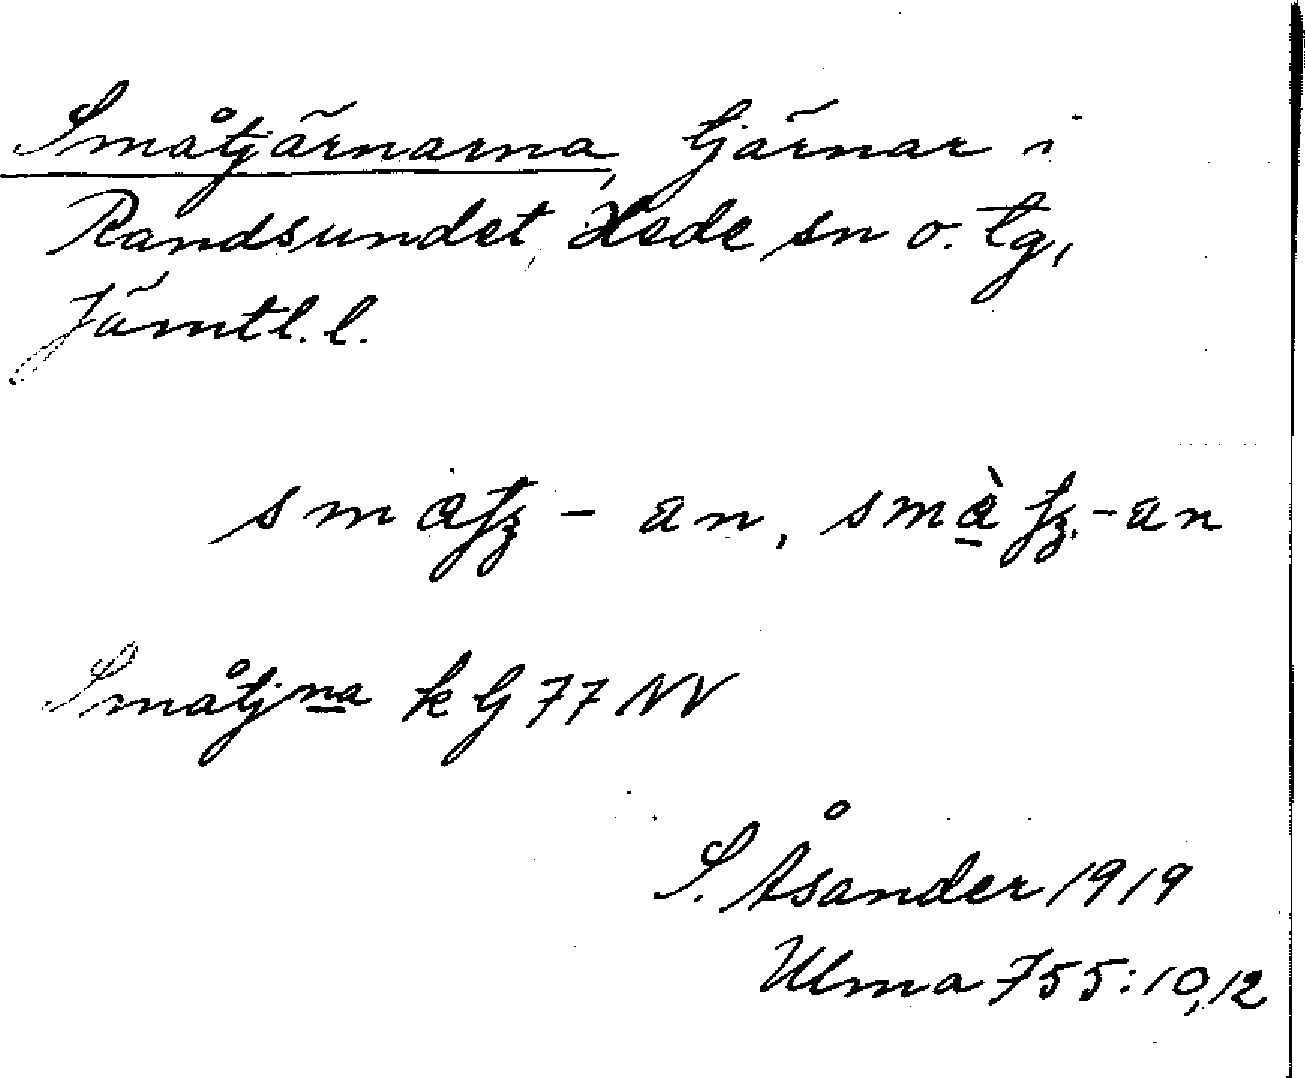 Småtjärnarna, tjärnar i
Randsundet, Hede sn o. tg,
Jämtl. l.
småtjna k G 77 NV
S. Åsander 1919
Ulma 755:10,12